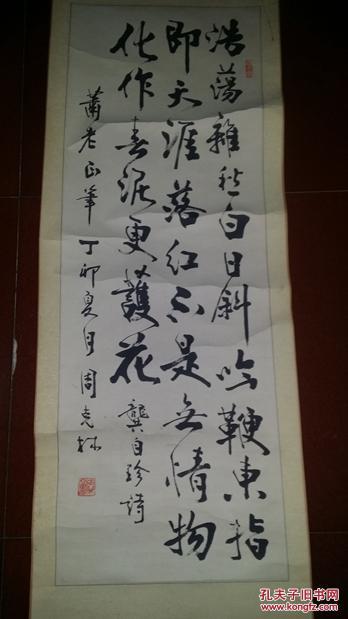 浩蕩離愁白日斜吟鞭東指
即天涯落紅不是無情物
化作春泥更護花
龔自珍詩
蕭老正筆丁卯夏月周克
孔夫子旧书网
www.kongfz.com